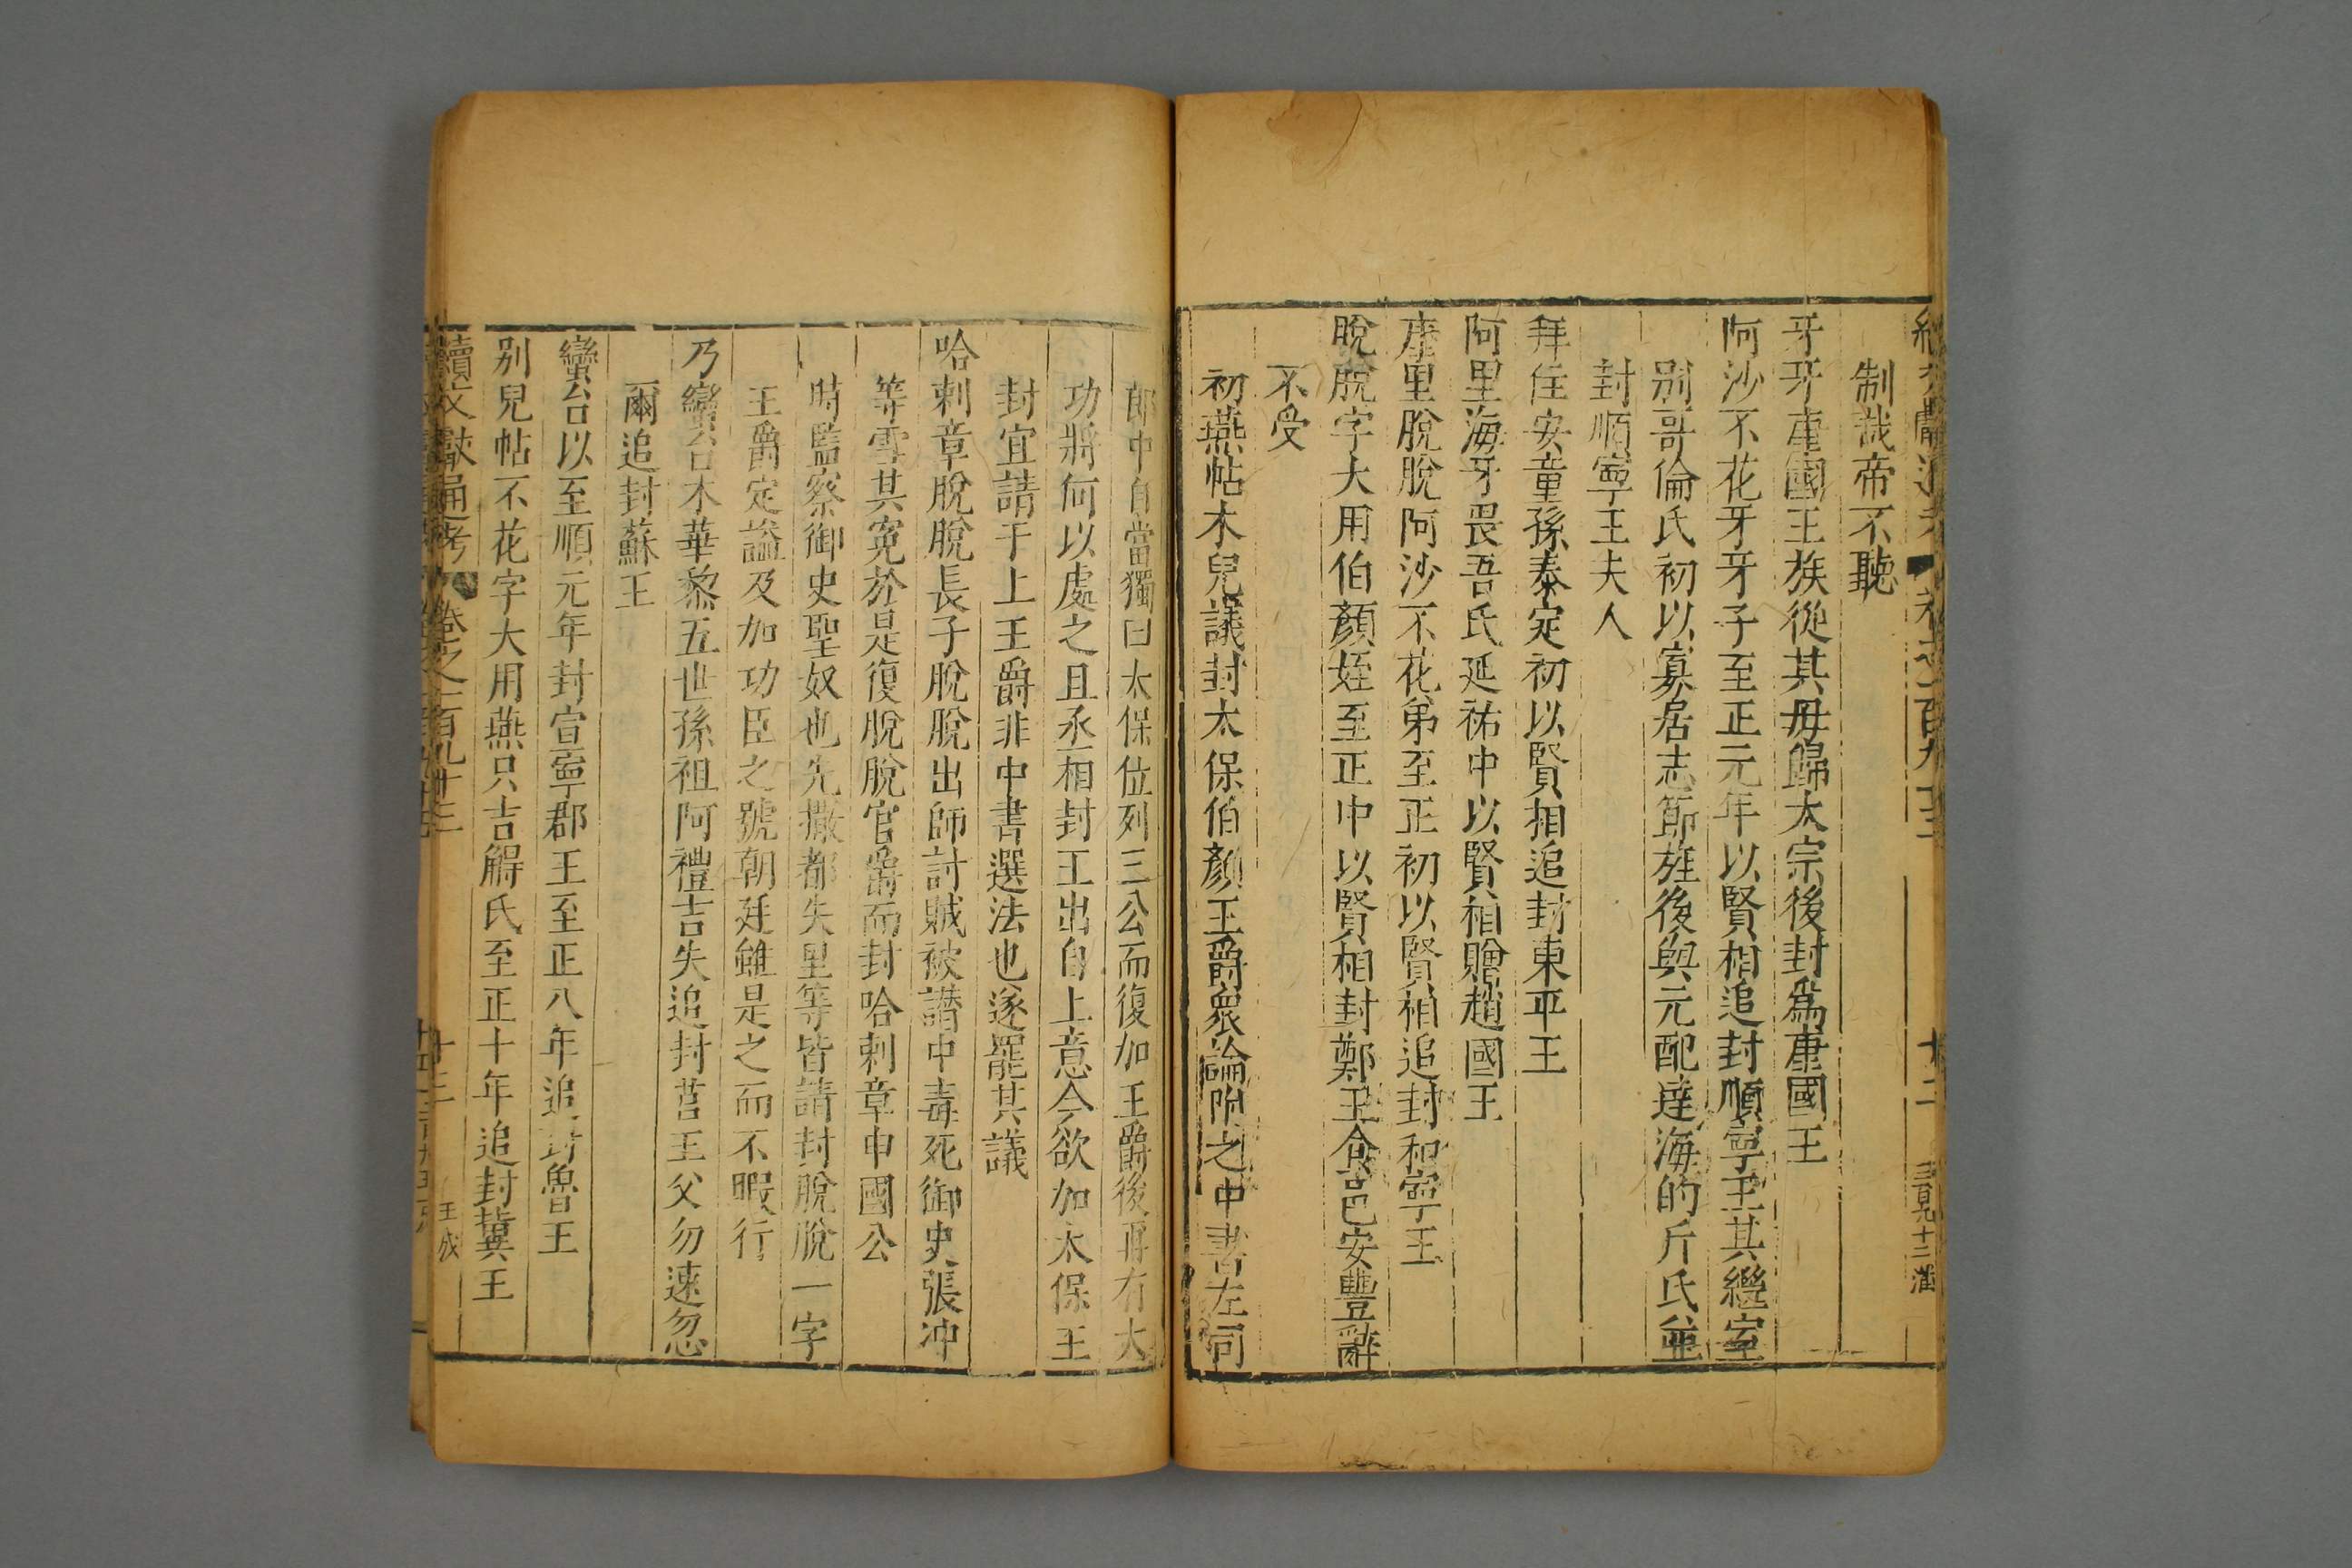 制哉帝不聽
牙牙康國王族從其母歸太宗後封爲康國王
阿沙不花牙牙子至正元年以賢相追封順寧王其繼室
别哥倫氏初以寡居志節旌後與元配達海的斤氏並
封順寧王夫人
拜住安童孫泰定初以賢相追封東平王
阿里海牙畏吾氏延祐中以賢相贈趙國王
康里脫脫阿沙不花弟至正初以賢相追封和寧王
脫脫字大用伯顏姪至正中以賢相封鄭王食邑安豐辭
不受
初燕帖木兒議封太保伯顏王爵衆論附之中書左司
郎中自當獨曰太保位列三公而復加王爵後再有大
功將何以處之且丞相封王出自上意今欲加太保王
封宜請于上王爵非中書選法也遂罷其議
哈剌章脫脫長子脫脫出師討賊被譖中毒死御史張冲
等雪其寃於是復脫脫官爵而封哈剌章申國公
時監察御史聖奴也先撒都失里等皆請封脫脫一字
王爵定謚及加功臣之號朝廷雖是之而不暇行
乃蠻台木華黎五世孫祖阿禮吉失追封莒王父勿速忽
爾追封蘇王
蠻台以至順元年封宣寧郡王至正八年追封魯王
别兒帖不花字大用燕只吉觧氏至正十年追封冀王
續文獻通考 卷之一百九十三 十三 王成